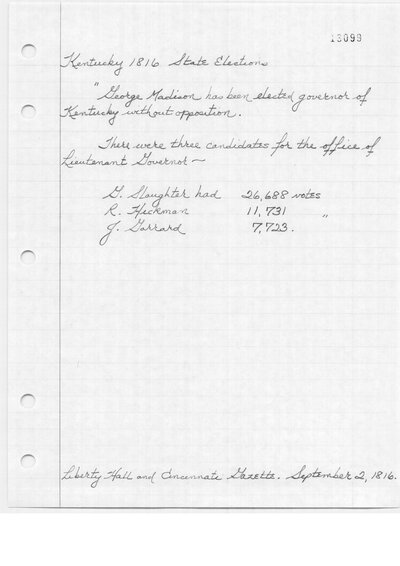 13099
Kentucky 1816 State Elections
"George Madison has been elected governor of
Kentucky without opposition.
There were three candidates for the office of
Lieutenant Governor—
G. Slaughter had 26,688 votes
R. Hickman 11,731 "
J. Garrard 7,723.
Liberty Hall and Cincinnati Gazette. September 2, 1816.